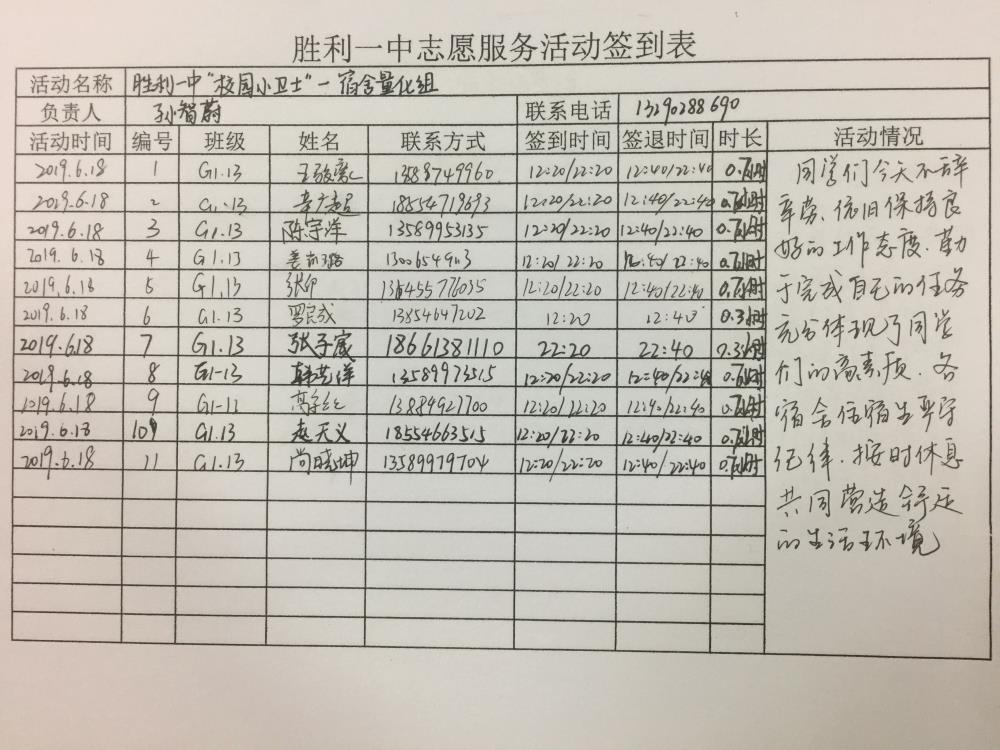 胜利一中志愿服务活动签到表
活动名称 胜利一中“校园小卫士”-宿舍量化组
负责人 孙智蔚 联系电话 13290288690
活动时间 编号 班级 姓名 联系方式 签到时间 签退时间 时长 活动情况
2019.6.18 1 G1.13 12:20/22:20 12:40/22:40
2019.6.18 2 G1.13 18554719693 12:20/22:20 12:40/22:40
2019.6.18 3 G1.13 陈宇洋 13589953135 12:20/22:20 12:40/22:40
2019.6.18 4 G1.13 12:20/22:20 12:40/22:40
2019.6.18 5 G1.13 12:20/22:20 12:40/22:40
2019.6.18 6 G1.13 13854647202 12:20 12:40 0.3小时
2019.6.18 7 G1.13 张子宸 18661381110 22:20 22:40 0.3小时
2019.6.18 8 G1-13 韩艺洋 13589973515 12:20/22:20 12:40/22:40
2019.6.18 9 13884927700 12:20/22:20 12:40/22:40
2019.6.18 10 G1.13 赵天义 18554663515 12:20/22:20 12:40/22:40
2019.6.18 11 G1.13 尚晓坤 13589979704 12:20/22:20 12:40/22:40
同学们今天不辞
辛劳、依旧保持良
好的工作态度、勤
于完成自己的任务
充分体现了同学
们的高素质．各
宿舍住宿生严守
纪律．按时休息
共同营造舒适
的生活环境